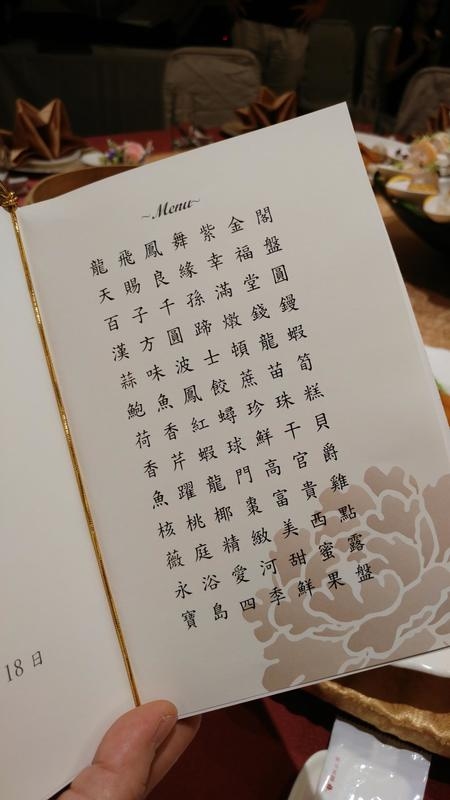 ~Menu~
龍飛鳳舞紫金閣
天賜良緣幸福盤
百子千孫滿堂圓
漢方圓蹄燉錢鰻
蒜味波士頓龍蝦
鮑魚鳳餃蔗苗筍
荷香紅蟳珍珠糕
香芹蝦球鮮干貝
魚躍龍門高官爵
核桃椰棗富貴雞
薇庭精緻美西點
永浴愛河甜蜜露
寶島四季鮮果盤
18 日